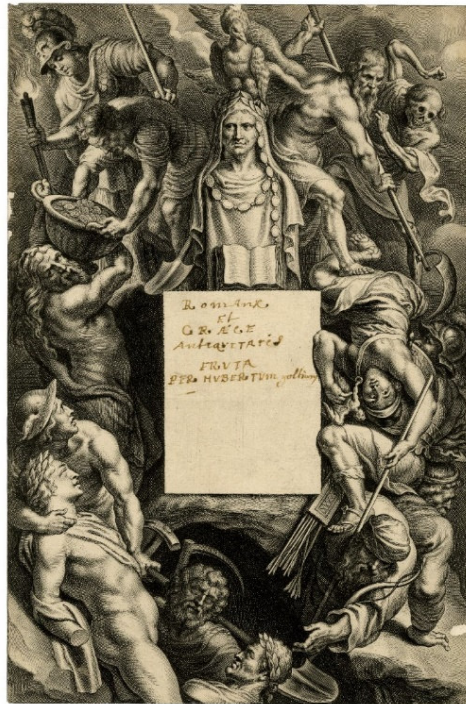 Romanæ
et
GRÆCE
Antiquitatis
ERVTA
PER HVBERTVM goltium